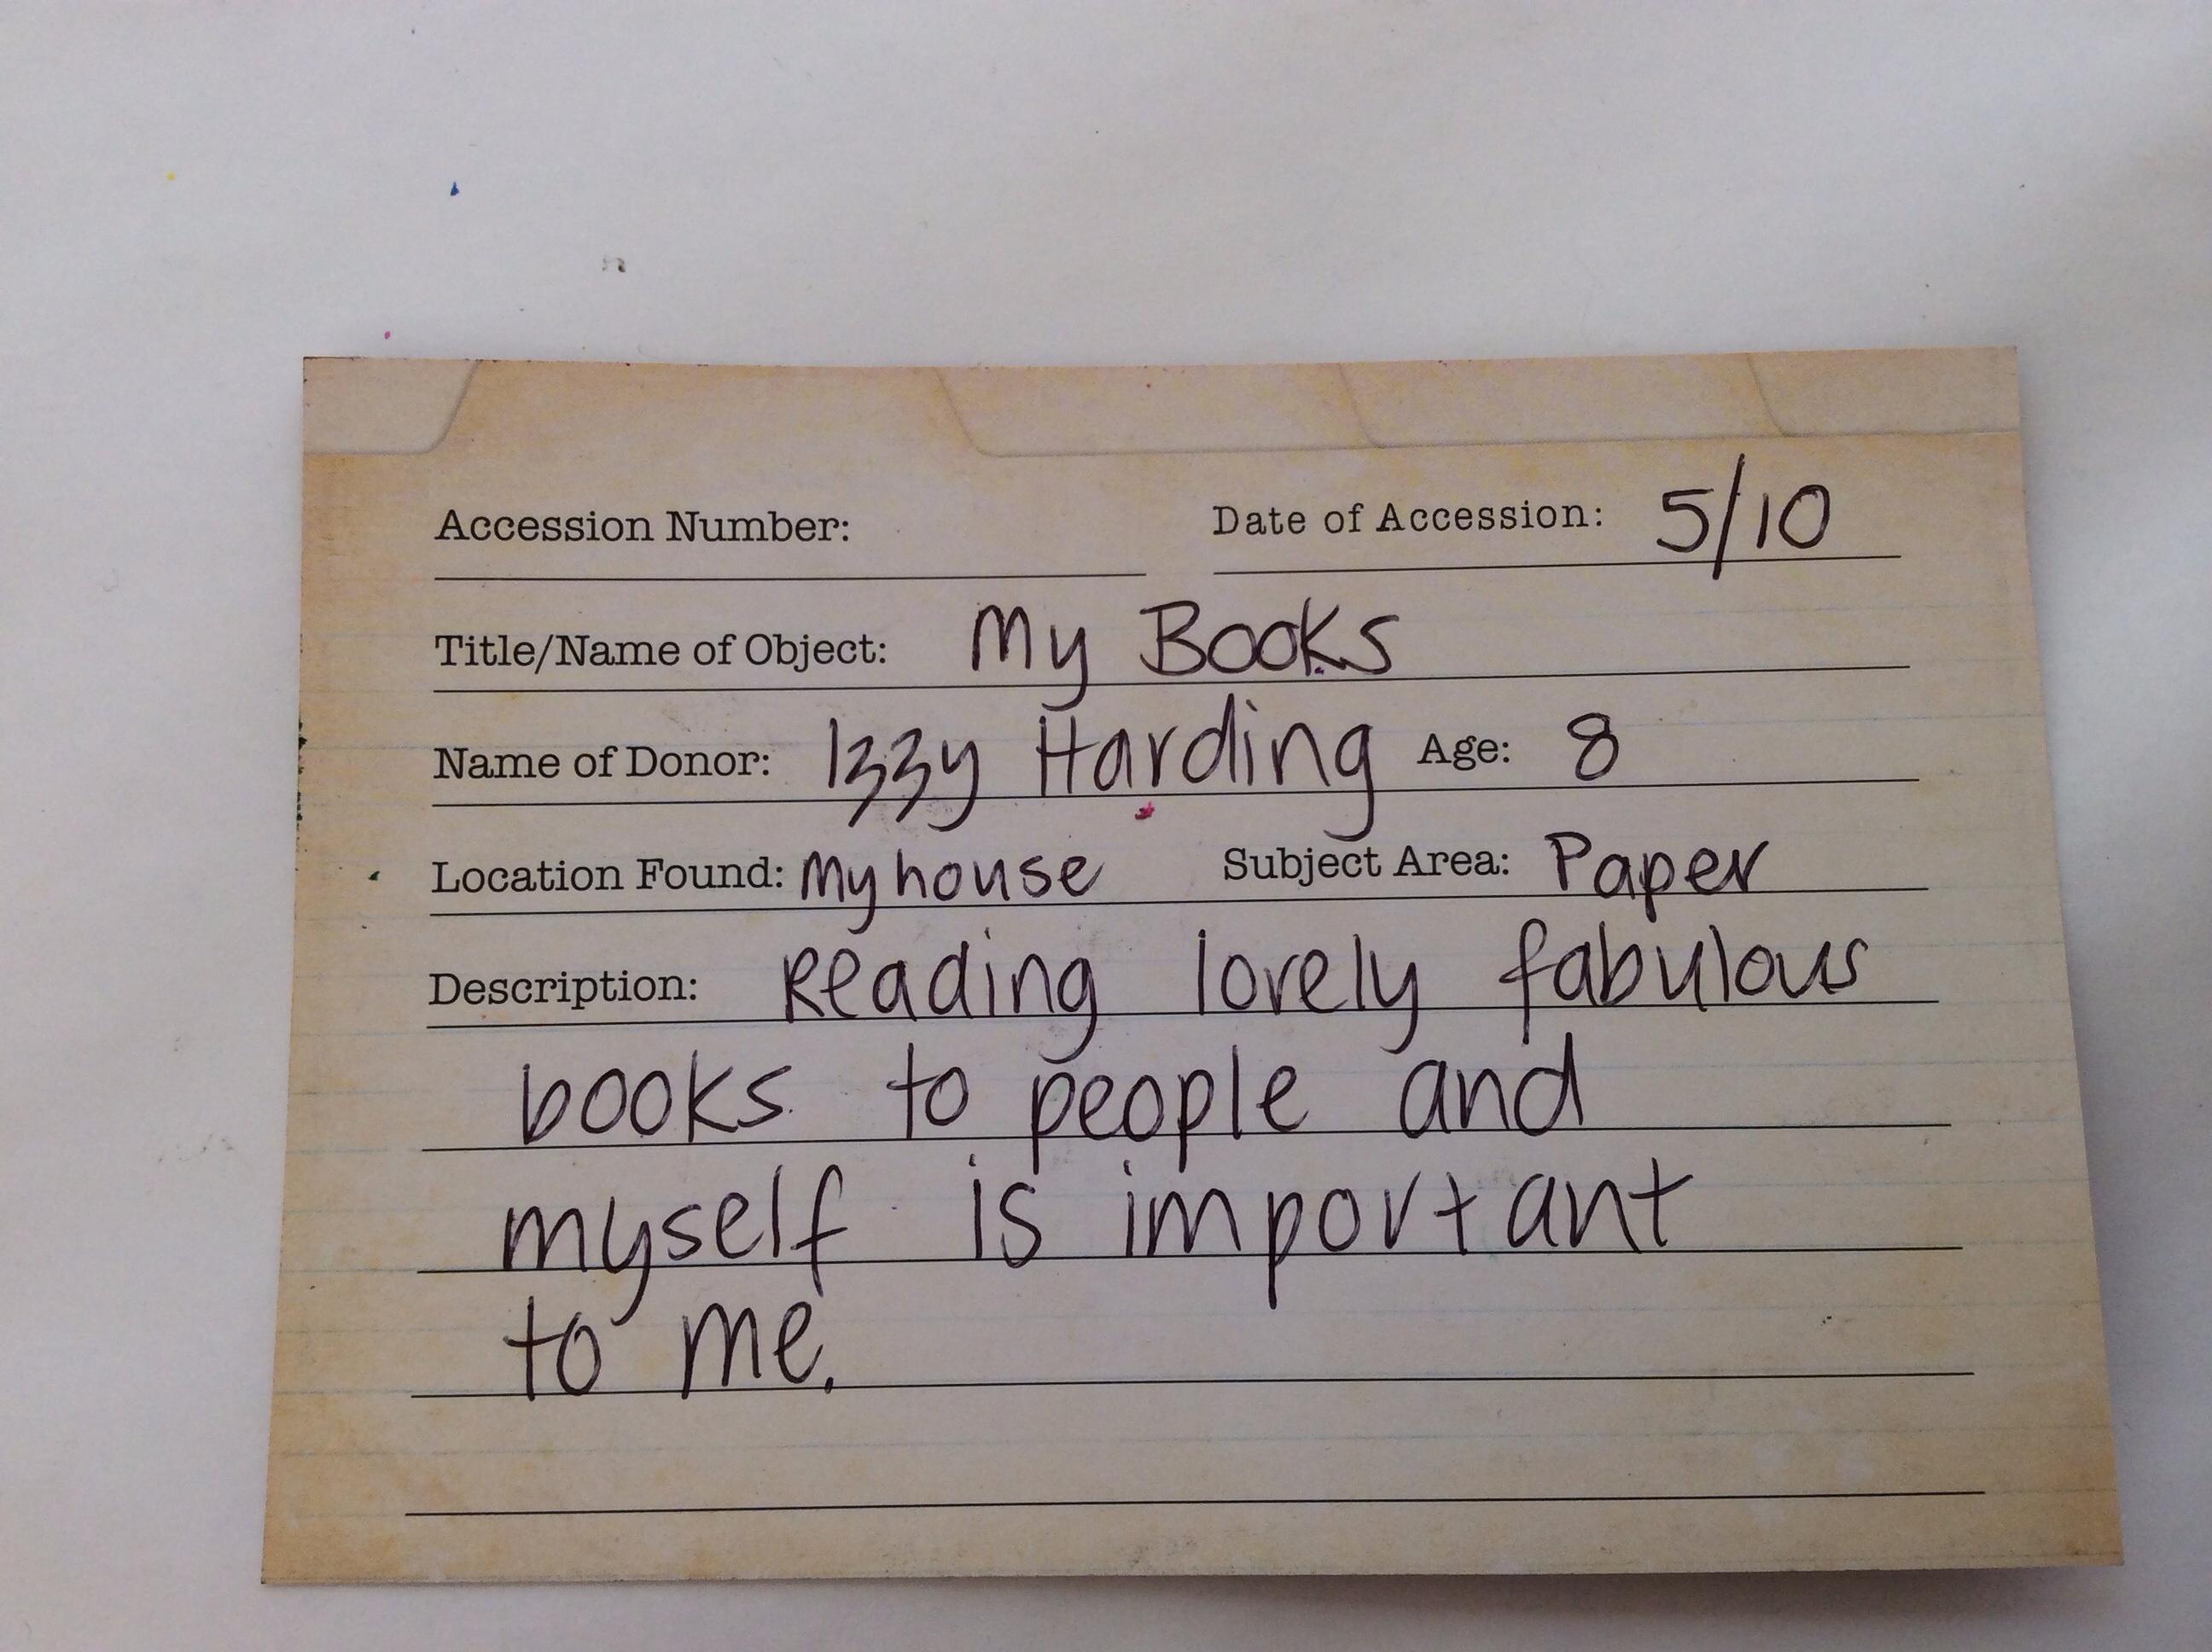 Accession Number: Date of Accession: 5/10
Title/Name of Object: My Books
Name of Donor: Izzy Harding Age: 8
Location Found: My house Subject Area: Paper
Description: Reading lovely fabulous
books to people and
myself is important
to me.